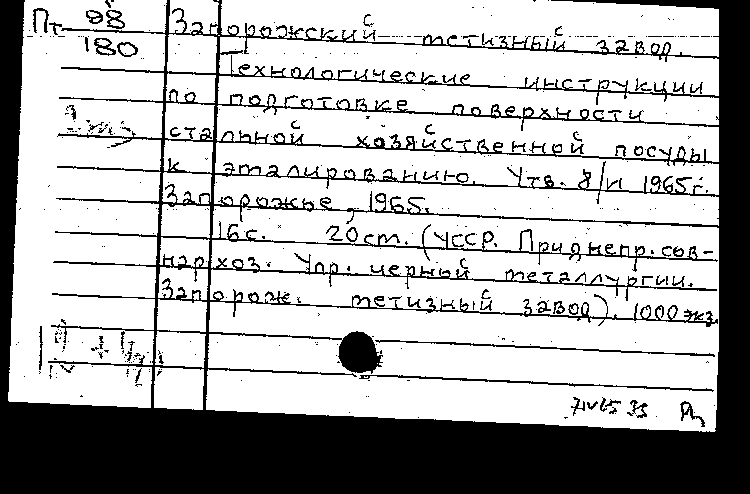 Пт 98
180
Запорожский метизный завод.
Технологические инструкции
по подготовке поверхности
стальной хозяйственной посуды
к эмалированию. Утв. 8/II 1965г.
Запорожье, 1965.
16с. 20см. (УССР. Приднепр. сов-
нархоз. Упр. черной металлургии.
Запорож. метизный завод). 1000 экз.